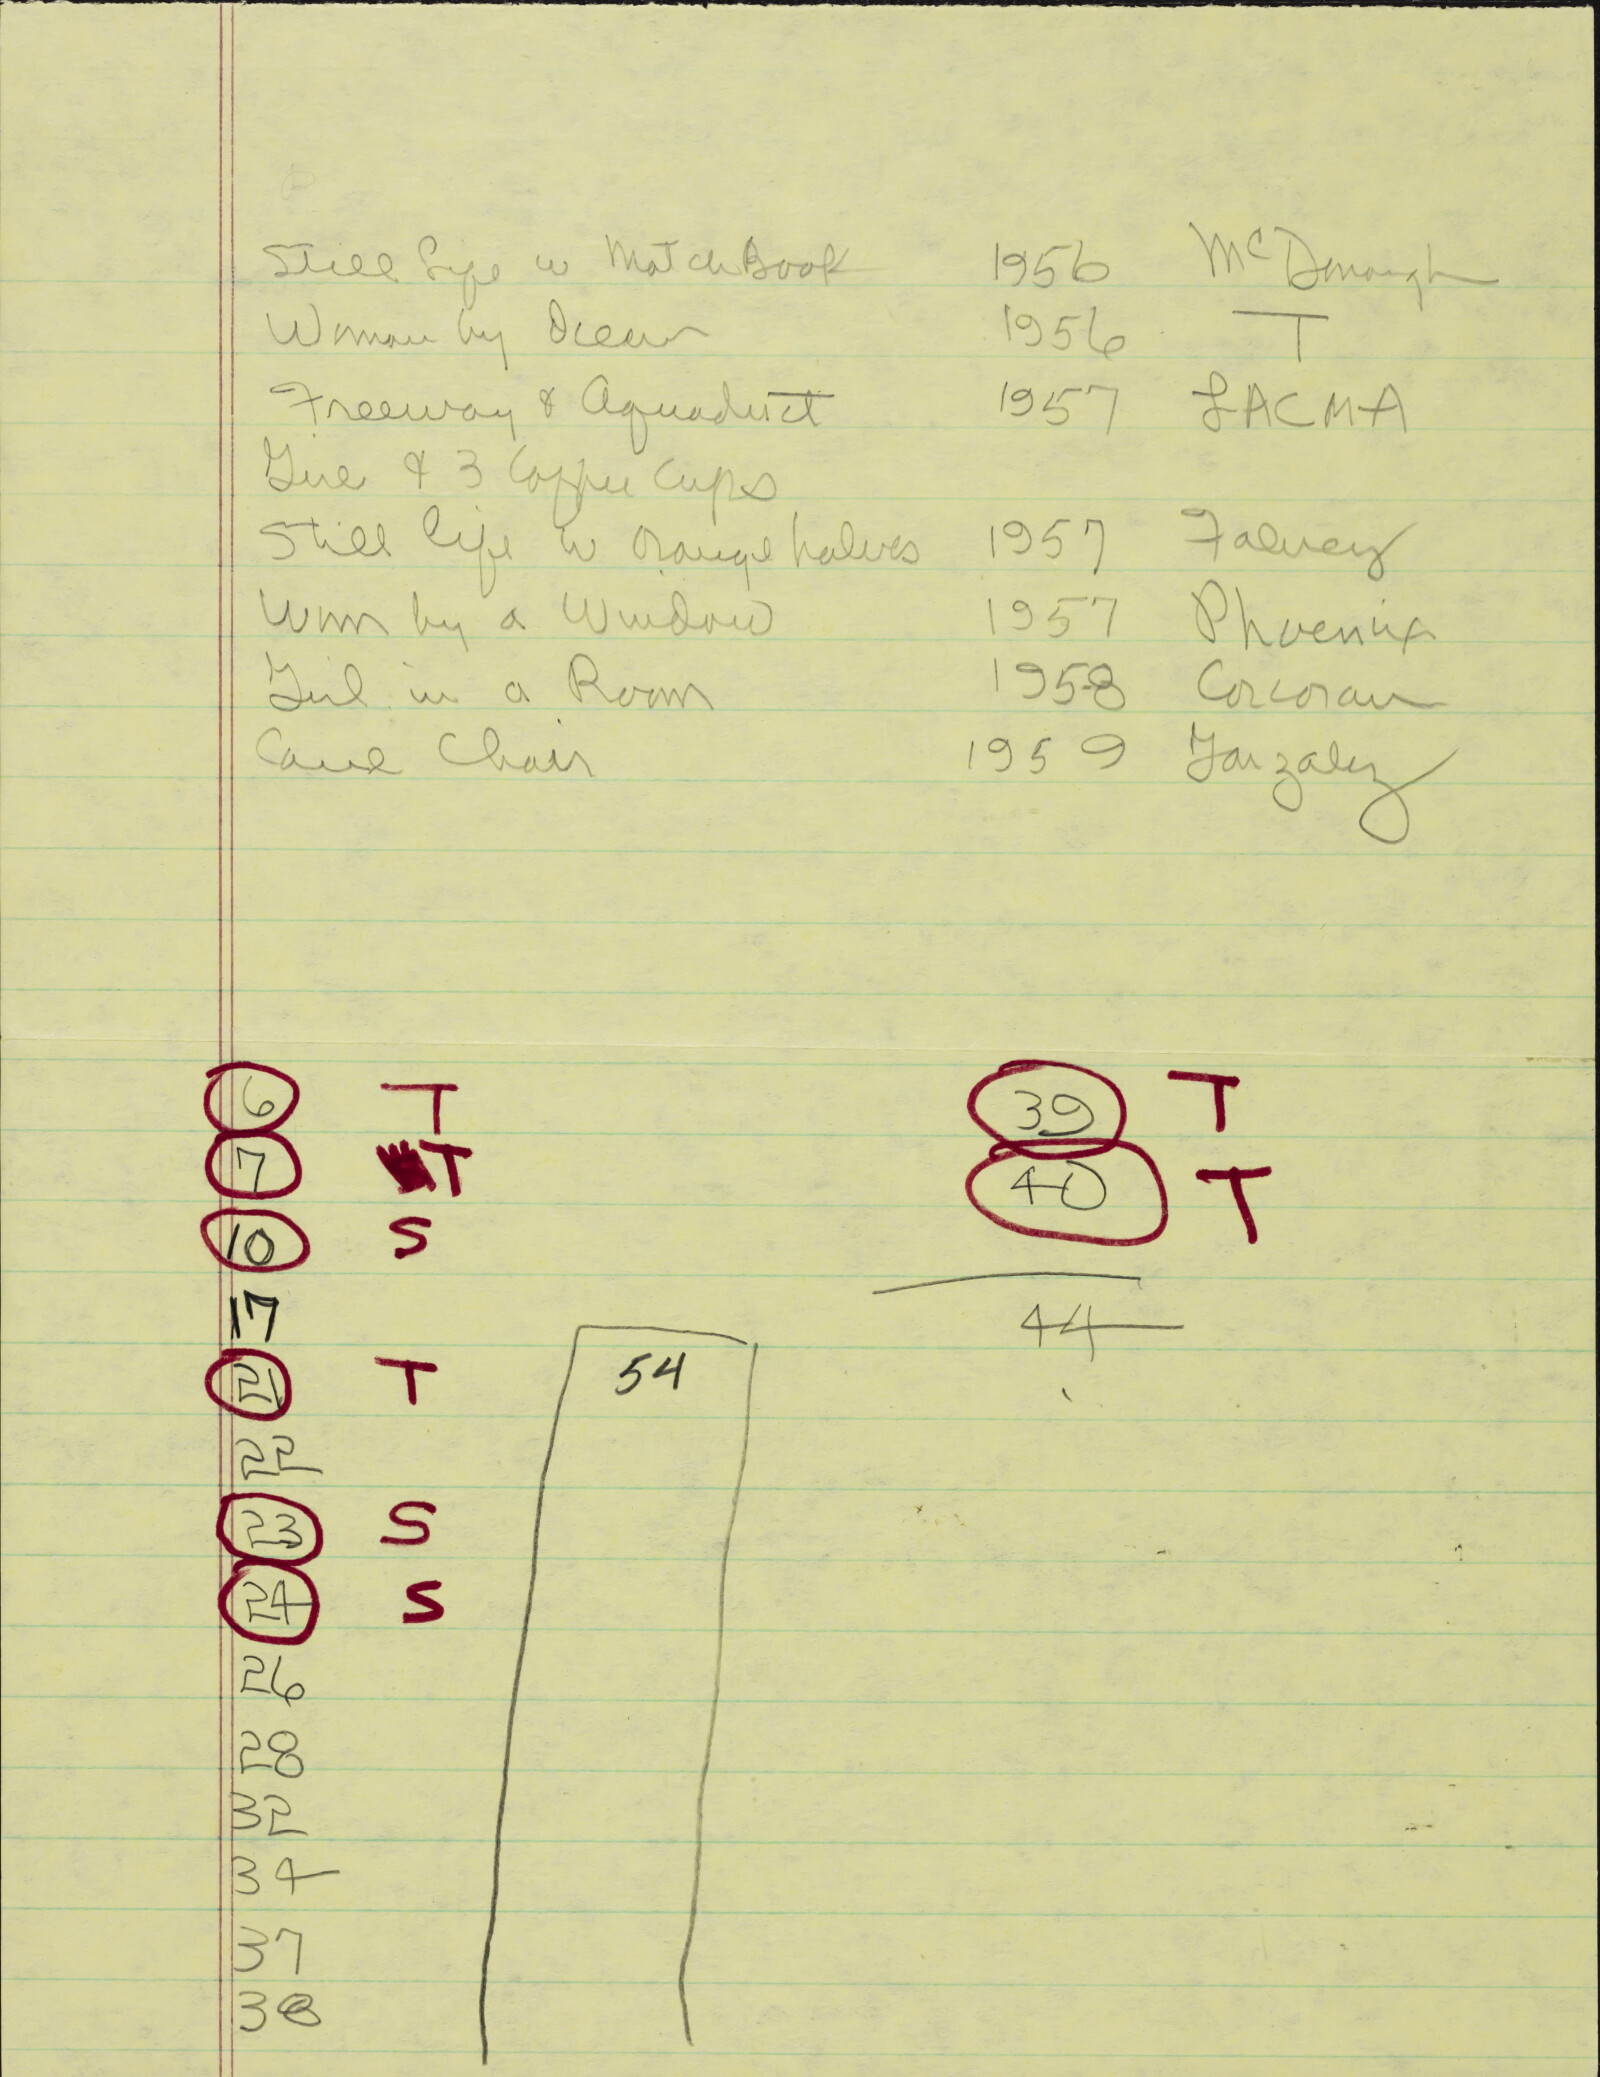 Still Life w MatchBook 1956 McDonough
Woman by Ocean 1956 T
Freeway & Aquaduct 1957 LACMA
Girl & 3 Coffee Cups
Still life w orange halves 1957 Falvey
Wom by a Window 1957 Phoenix
Girl in a Room 1958 Corcoran
Cane Chair 1959 Gonzalez
6 T 39 T
7 T 40 T
10 S
17 44
21 T 54
22
23 S
24 S
26
28
32
34
37
38